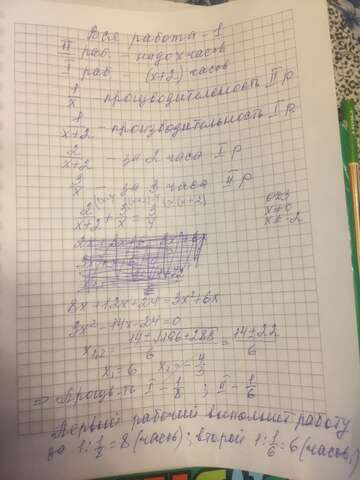 Вся работа - 1
II раб - надо x часов
I раб - (x+2) часов
1/x - производительность II р
1/x+2 - производительность I р
2/x+2 - за 2 часа I р
3/x - за 3 часа II р
2/x+2 + 3/x = 3/4
ОДЗ
x≠0
x≠-2
8x+12x+24=3x²+6x
3x²-14x-24=0
x₁,₂ = 14±√196+288/6 = 14±22/6
x₁=6 x₂=-4/3
⇒ Производ-ть I - 1/8 ; II - 1/6
Первый рабочий выполнит работу
за 1:1/8=8 (часов); второй 1:1/6=6 (часов.)